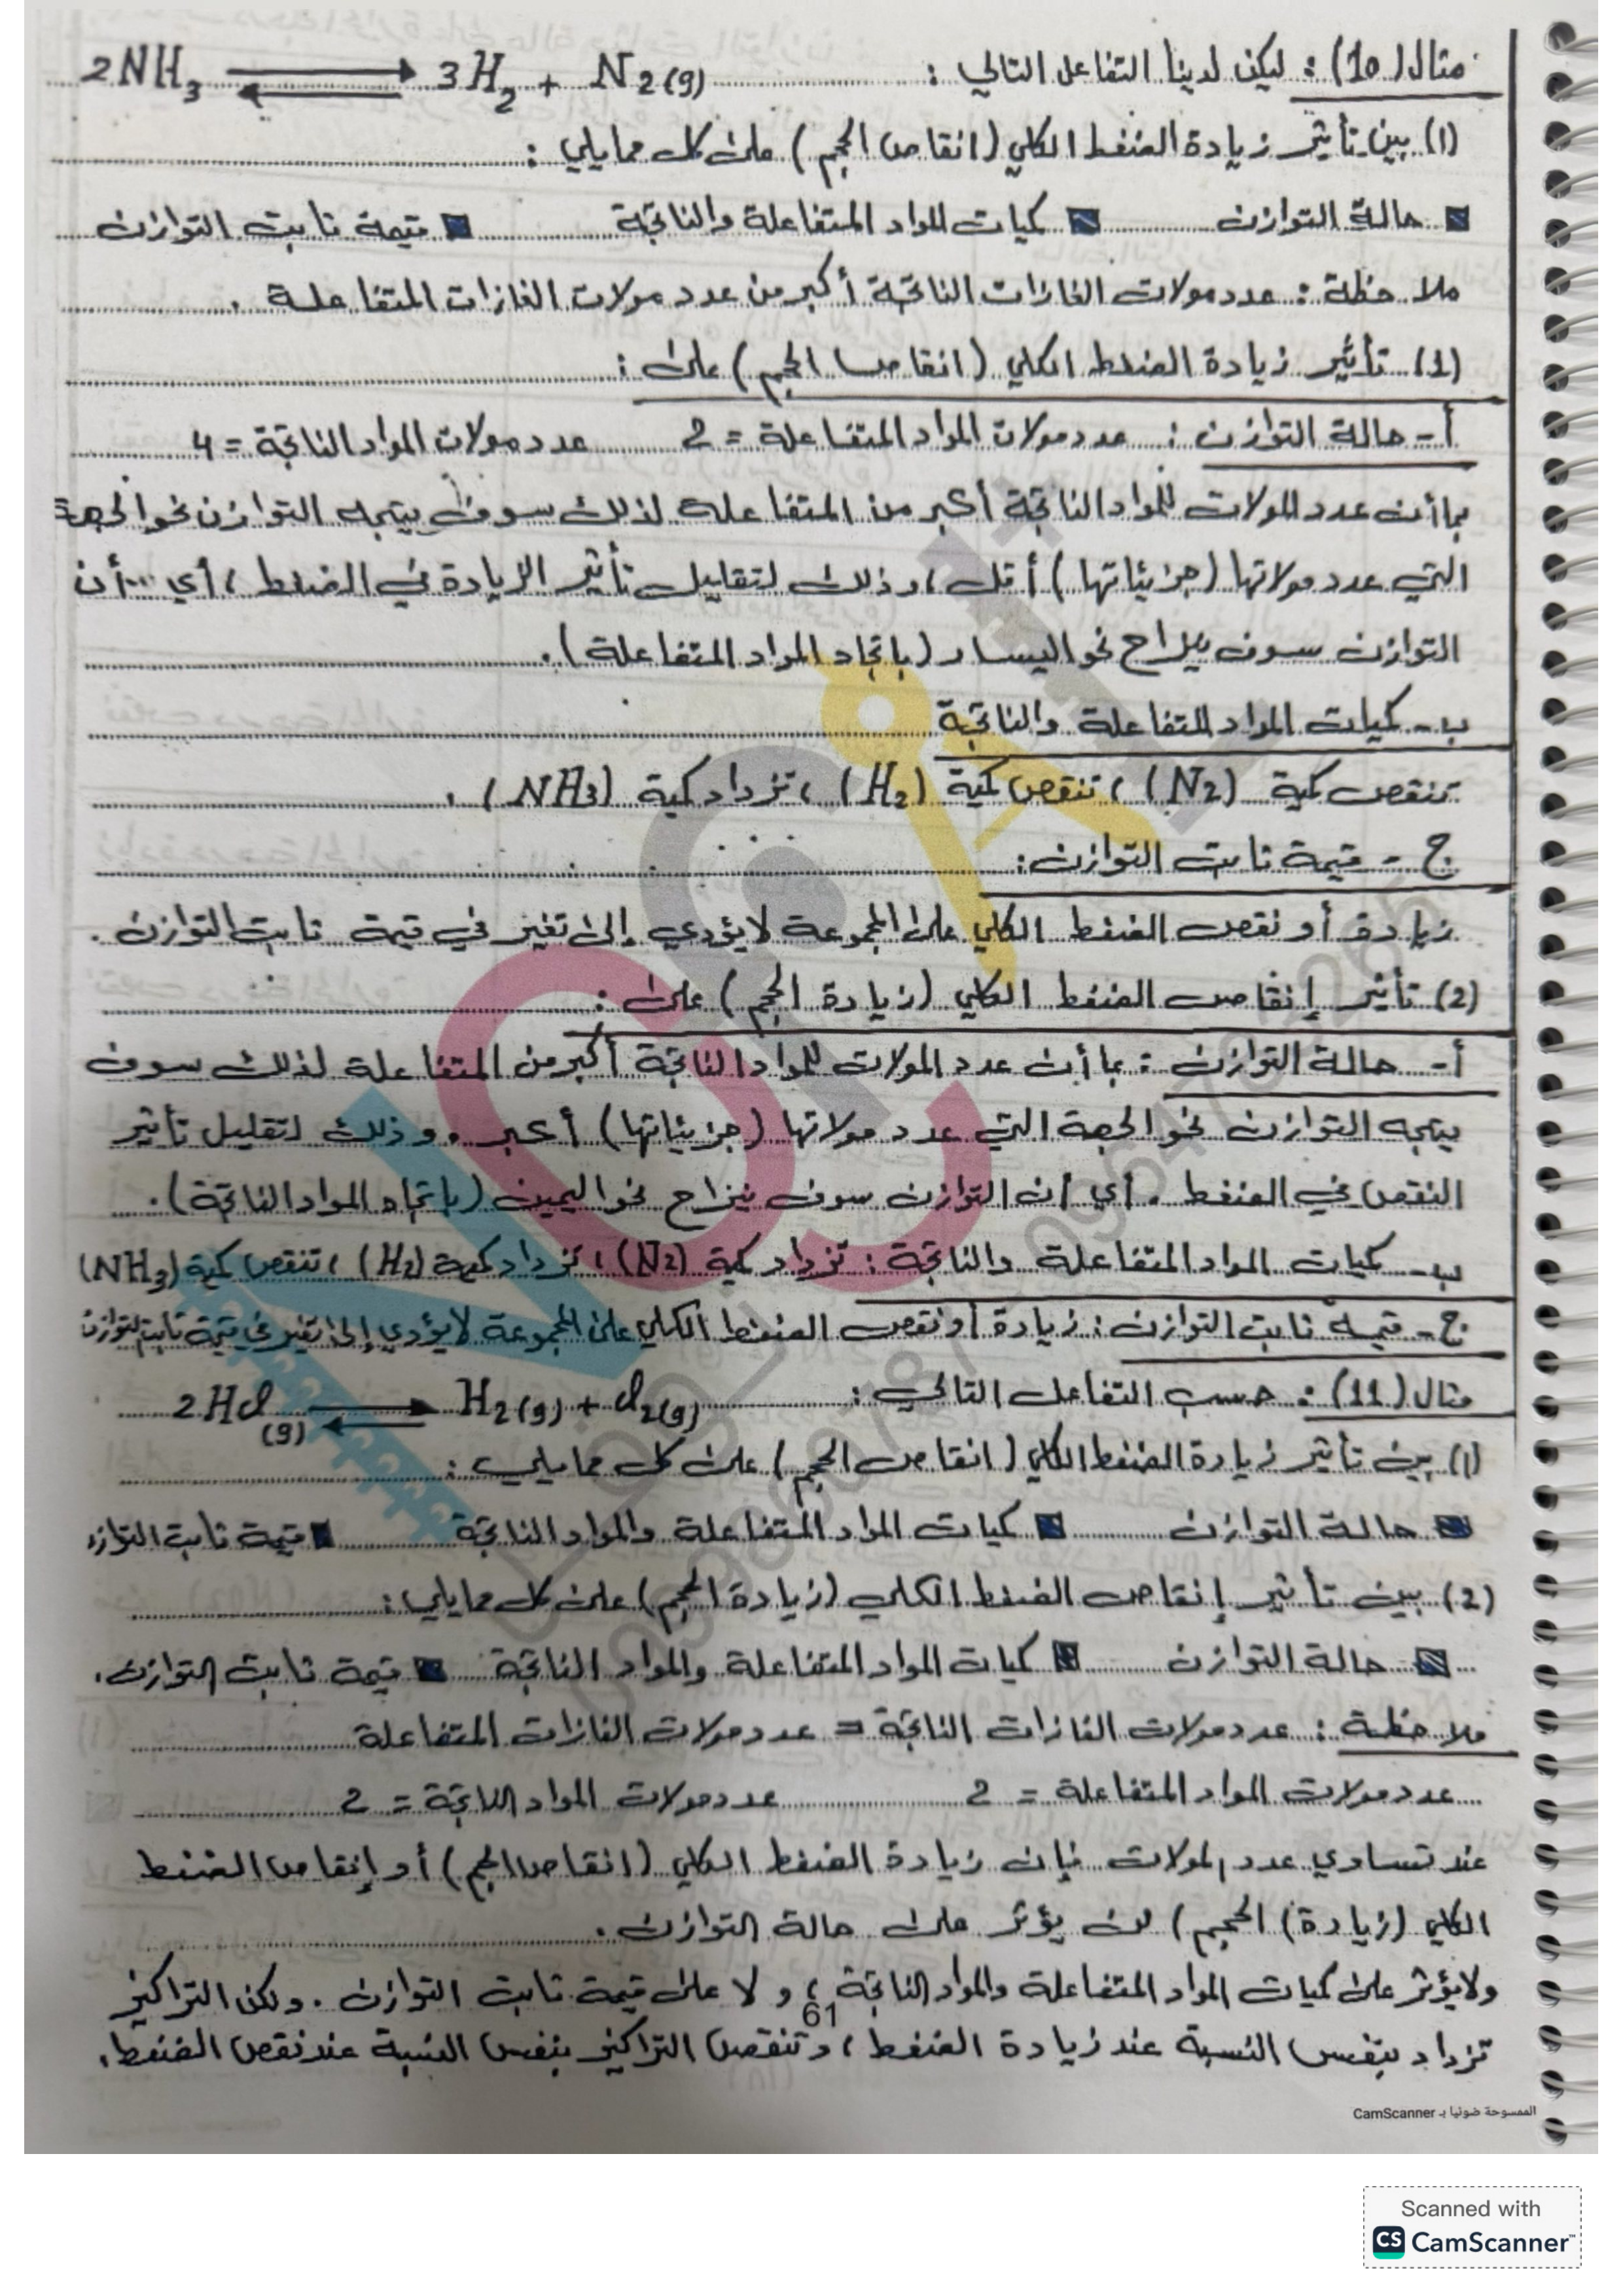 مثال (10) : ليكن لدينا التفاعل التالي : 2NH3 ⇌ 3H2 + N2(g)
(1) بين تأثير زيادة الضغط الكلي (انقاص الحجم) على كل مما يلي :
حالة التوازن كميات المواد المتفاعلة والناتجة قيمة ثابت التوازن
ملاحظة : عدد مولات الغازات الناتجة أكبر من عدد مولات الغازات المتفاعلة .
(1) تأثير زيادة الضغط الكلي (انقاص الحجم) على :
أ - حالة التوازن : عدد مولات المواد المتفاعلة = 2 عدد مولات المواد الناتجة = 4
بما أن عدد المولات للمواد الناتجة أكبر من المتفاعلة لذلك سوف يتجه التوازن نحو الجهة
التي عدد مولاتها (جزيئاتها) أقل ، وذلك لتقليل تأثير الزيادة في الضغط ، أي أن
التوازن سوف ينزاح نحو اليسار (باتجاه المواد المتفاعلة) .
ب - كميات المواد المتفاعلة والناتجة
تنقص كمية (N2) ، تنقص كمية (H2) ، تزداد كمية (NH3) .
ج - قيمة ثابت التوازن :
زيادة أو نقص الضغط الكلي على المجموعة لا يؤدي إلى تغير في قيمة ثابت التوازن .
(2) تأثير إنقاص الضغط الكلي (زيادة الحجم) على :
أ - حالة التوازن : بما أن عدد المولات للمواد الناتجة أكبر من المتفاعلة لذلك سوف
يتجه التوازن نحو الجهة التي عدد مولاتها (جزيئاتها) أكبر . وذلك لتقليل تأثير
النقص في الضغط . أي أن التوازن سوف ينزاح نحو اليمين (باتجاه المواد الناتجة) .
ب - كميات المواد المتفاعلة والناتجة : تزداد كمية (N2) ، تزداد كمية (H2) ، تنقص كمية (NH3)
ج - قيمة ثابت التوازن : زيادة أو نقص الضغط الكلي على المجموعة لا يؤدي إلى تغير في قيمة ثابت التوازن
مثال (11) : حسب التفاعل التالي : 2HCl(g) ⇌ H2(g) + Cl2(g)
(1) بين تأثير زيادة الضغط الكلي (انقاص الحجم) على كل مما يلي :
حالة التوازن كميات المواد المتفاعلة والمواد الناتجة قيمة ثابت التوازن
(2) بين تأثير إنقاص الضغط الكلي (زيادة الحجم) على كل مما يلي :
حالة التوازن كميات المواد المتفاعلة والمواد الناتجة قيمة ثابت التوازن .
ملاحظة : عدد مولات الغازات الناتجة = عدد مولات الغازات المتفاعلة
عدد مولات المواد المتفاعلة = 2 عدد مولات المواد الناتجة = 2
عند تساوي عدد المولات فإن زيادة الضغط الكلي (انقاص الحجم) أو إنقاص الضغط
الكلي (زيادة) الحجم) لن يؤثر على حالة التوازن .
ولا يؤثر على كميات المواد المتفاعلة والمواد الناتجة ، ولا على قيمة ثابت التوازن . ولكن التراكيز
61
تزداد بنفس النسبة عند زيادة الضغط ، وتنقص التراكيز بنفس النسبة عند نقص الضغط .
الممسوحة ضوئيا بـ CamScanner
Scanned with
CS CamScanner